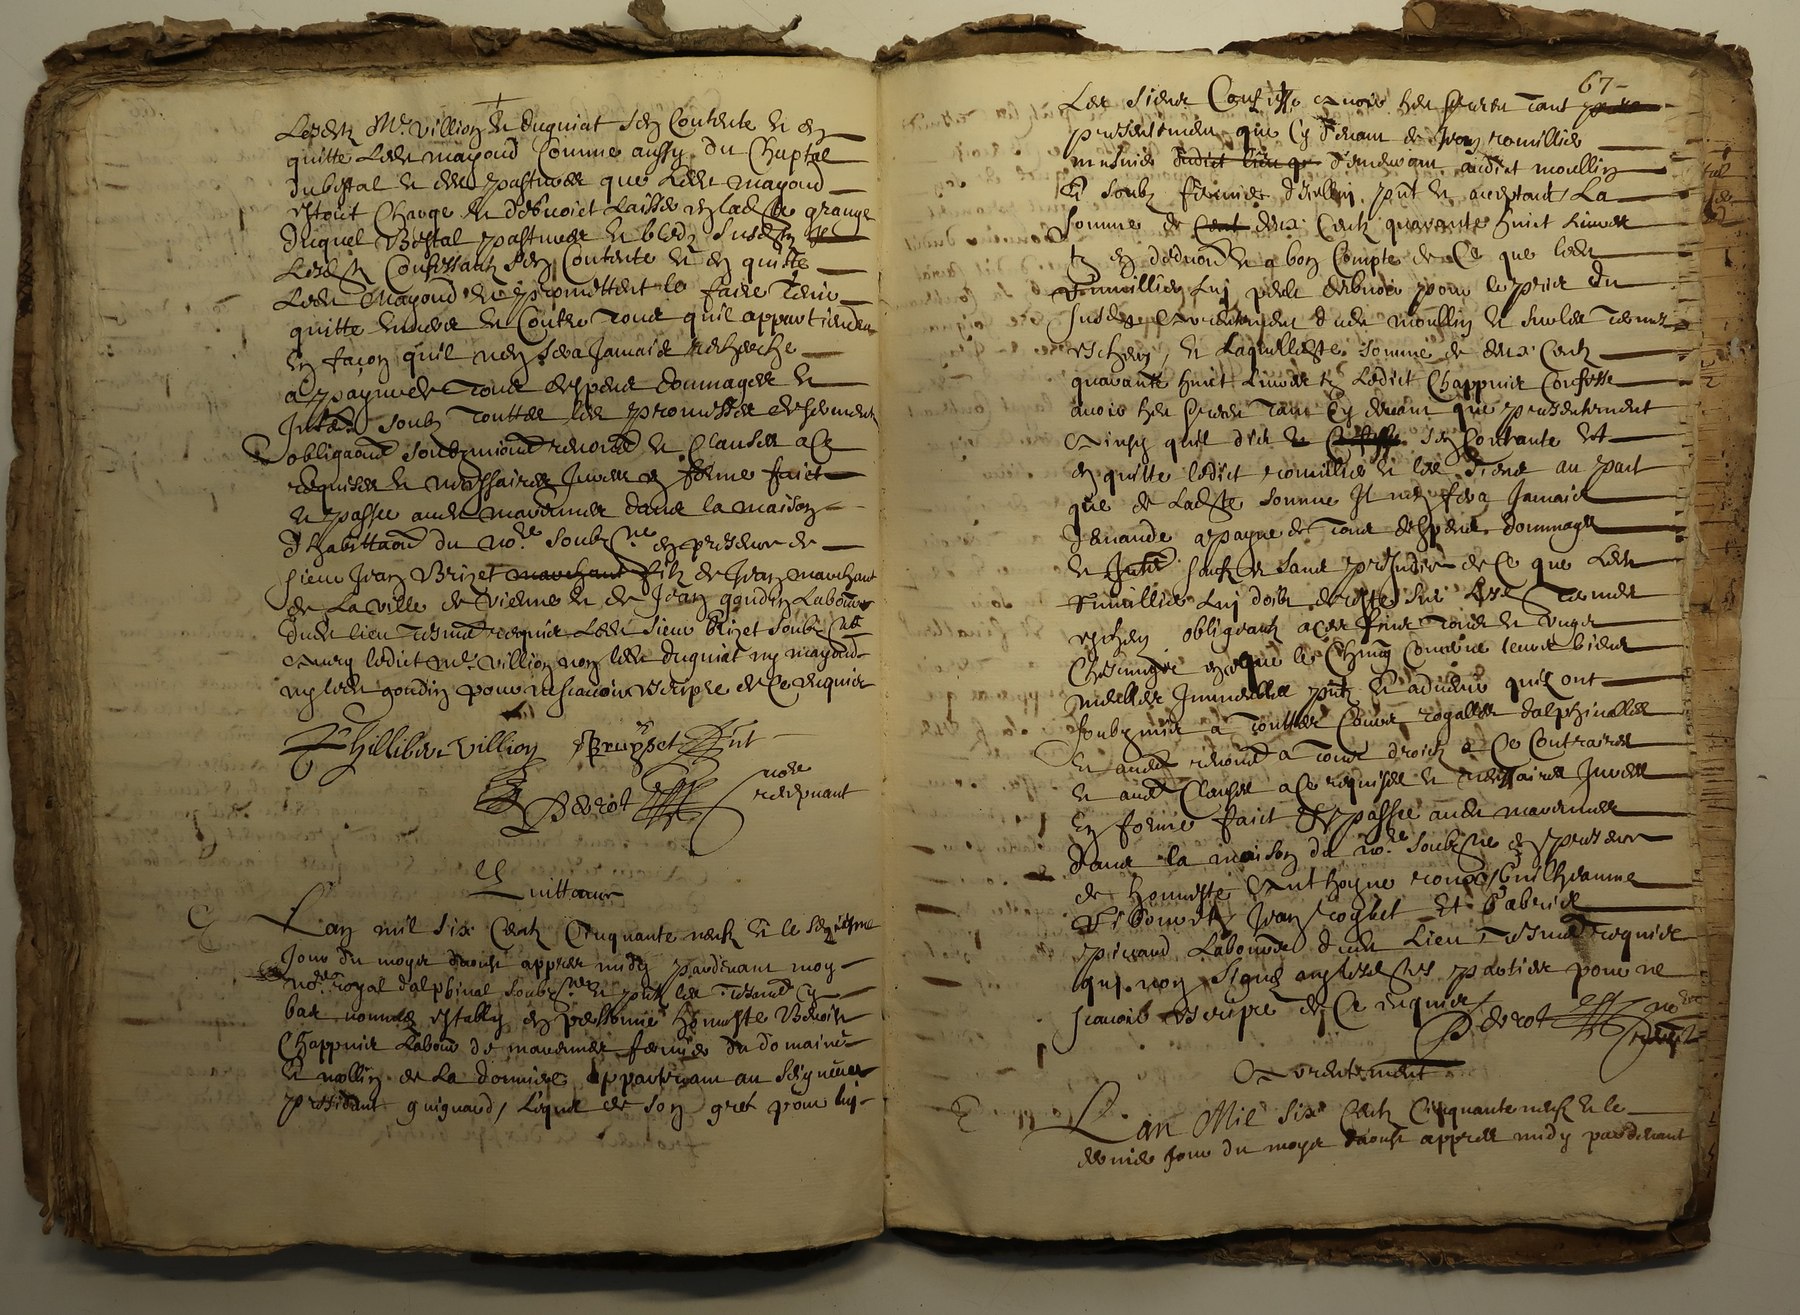 Lesdtz Mre Villion et duguiat sen Contente et en
quitte Ledt mayoud Comme aussy du Chaptal
dubestal et des pastures que Ledt mayoud
estoit Charge et debvoict Laisse en ladte grange
duquel Bestal pastures et bledz susdtz
Lesdtz Confessantz sen Contente et en quitte
Ledt Mayoud et promettent le faire tenir
quitte envers et Contre tous quil appartiendra
en façon quil nen sera Jamais recherche
a payne de tous despens dommages et
Intz soubz touttes les promesses serments
obligaons soubzmissions renonces et Clauses a Ce
requises et necessaires Juree en forme faict
et passe audt marennes dans la maison
d'habittaon du nore soubzne en presence de
sieur Jean Brizet marchant filz de Jean marchant
de La ville de Vienne et de Jean goudin Laboure
dudt lieu tesms requis Ledt sieur Brizet soubzne
avecq ledict Mre Villion non ledt duguiat ny mayoud
ny ledt goudin pour ne scavoir escripre de Ce requis
Philliber Villion Bruyset pnt
Derot nore recepvant
Quittance
Lan mil six Centz Cinquante neufz et le
Jour du moys daoust appres midy pardevant moy
nore royal dalphinal soubzne et pntz les tesms cy
bas nommes estably en personne honneste Benoist
Chappuis Laboure de marennes fermier du domaine
et mollin de La donniere appartenant au seigneur
president guignard, Lequel de son gret pour luy
67
Les siens Confesse avoir heu et receu tant
presentement que Cy devant de Jean romillier
musnier dudict lieu demeurant audict moullin
Et soubz fermier dicelluy pnt et acceptant La
somme de Cent deux Centz quarante huict Livres
tz en deduction et a bon Compte de Ce que ledt
romillier Luy peult debvoir pour le prix du
susdt arrentement dudt moullin et sur les termes
escheus, et Laquelle dte somme de deux Centz
quarante huict Livres tz Ledict Chappuis Confesse
avoir heu et receu tant Cy devant que presentement
Ainsy quil dict et sen Contante et
en quitte ledict romillier et les siens au pact
que de Ladte somme Il nen fera Jamais
demande a payne de tous despens dommages
et Intz sauf et sans prejudice de Ce que Ledt
romillier Luy doibt de reste sur les dts termes
escheus obligeantz a ces fins
Chescungs en ce que le Cherng Concerne leurs biens
meubles Immeubles pntz et advenir quilz ont
soubzmis a touttes Cours royalles dalphinalles
et audt renonce a tous droictz a Ce Contraires
et audt Clauses a Ce requises et necessaires Juree
En forme faict et passe audt marennes
dans la maison du nore soubzne en presence
de honneste Anthoyne roux Guilheaume
Jean Coghet Et Gabriel
picaud Laboure dudt Lieu Tesms requis
qui non signe ny lesdtes parties pour ne
scavoir escripre de Ce requis
Derot nore recepvt
Arrentement
Lan Mil six Centz Cinquante neufz et le
dernier Jour du moys daoust appres midy pardevant